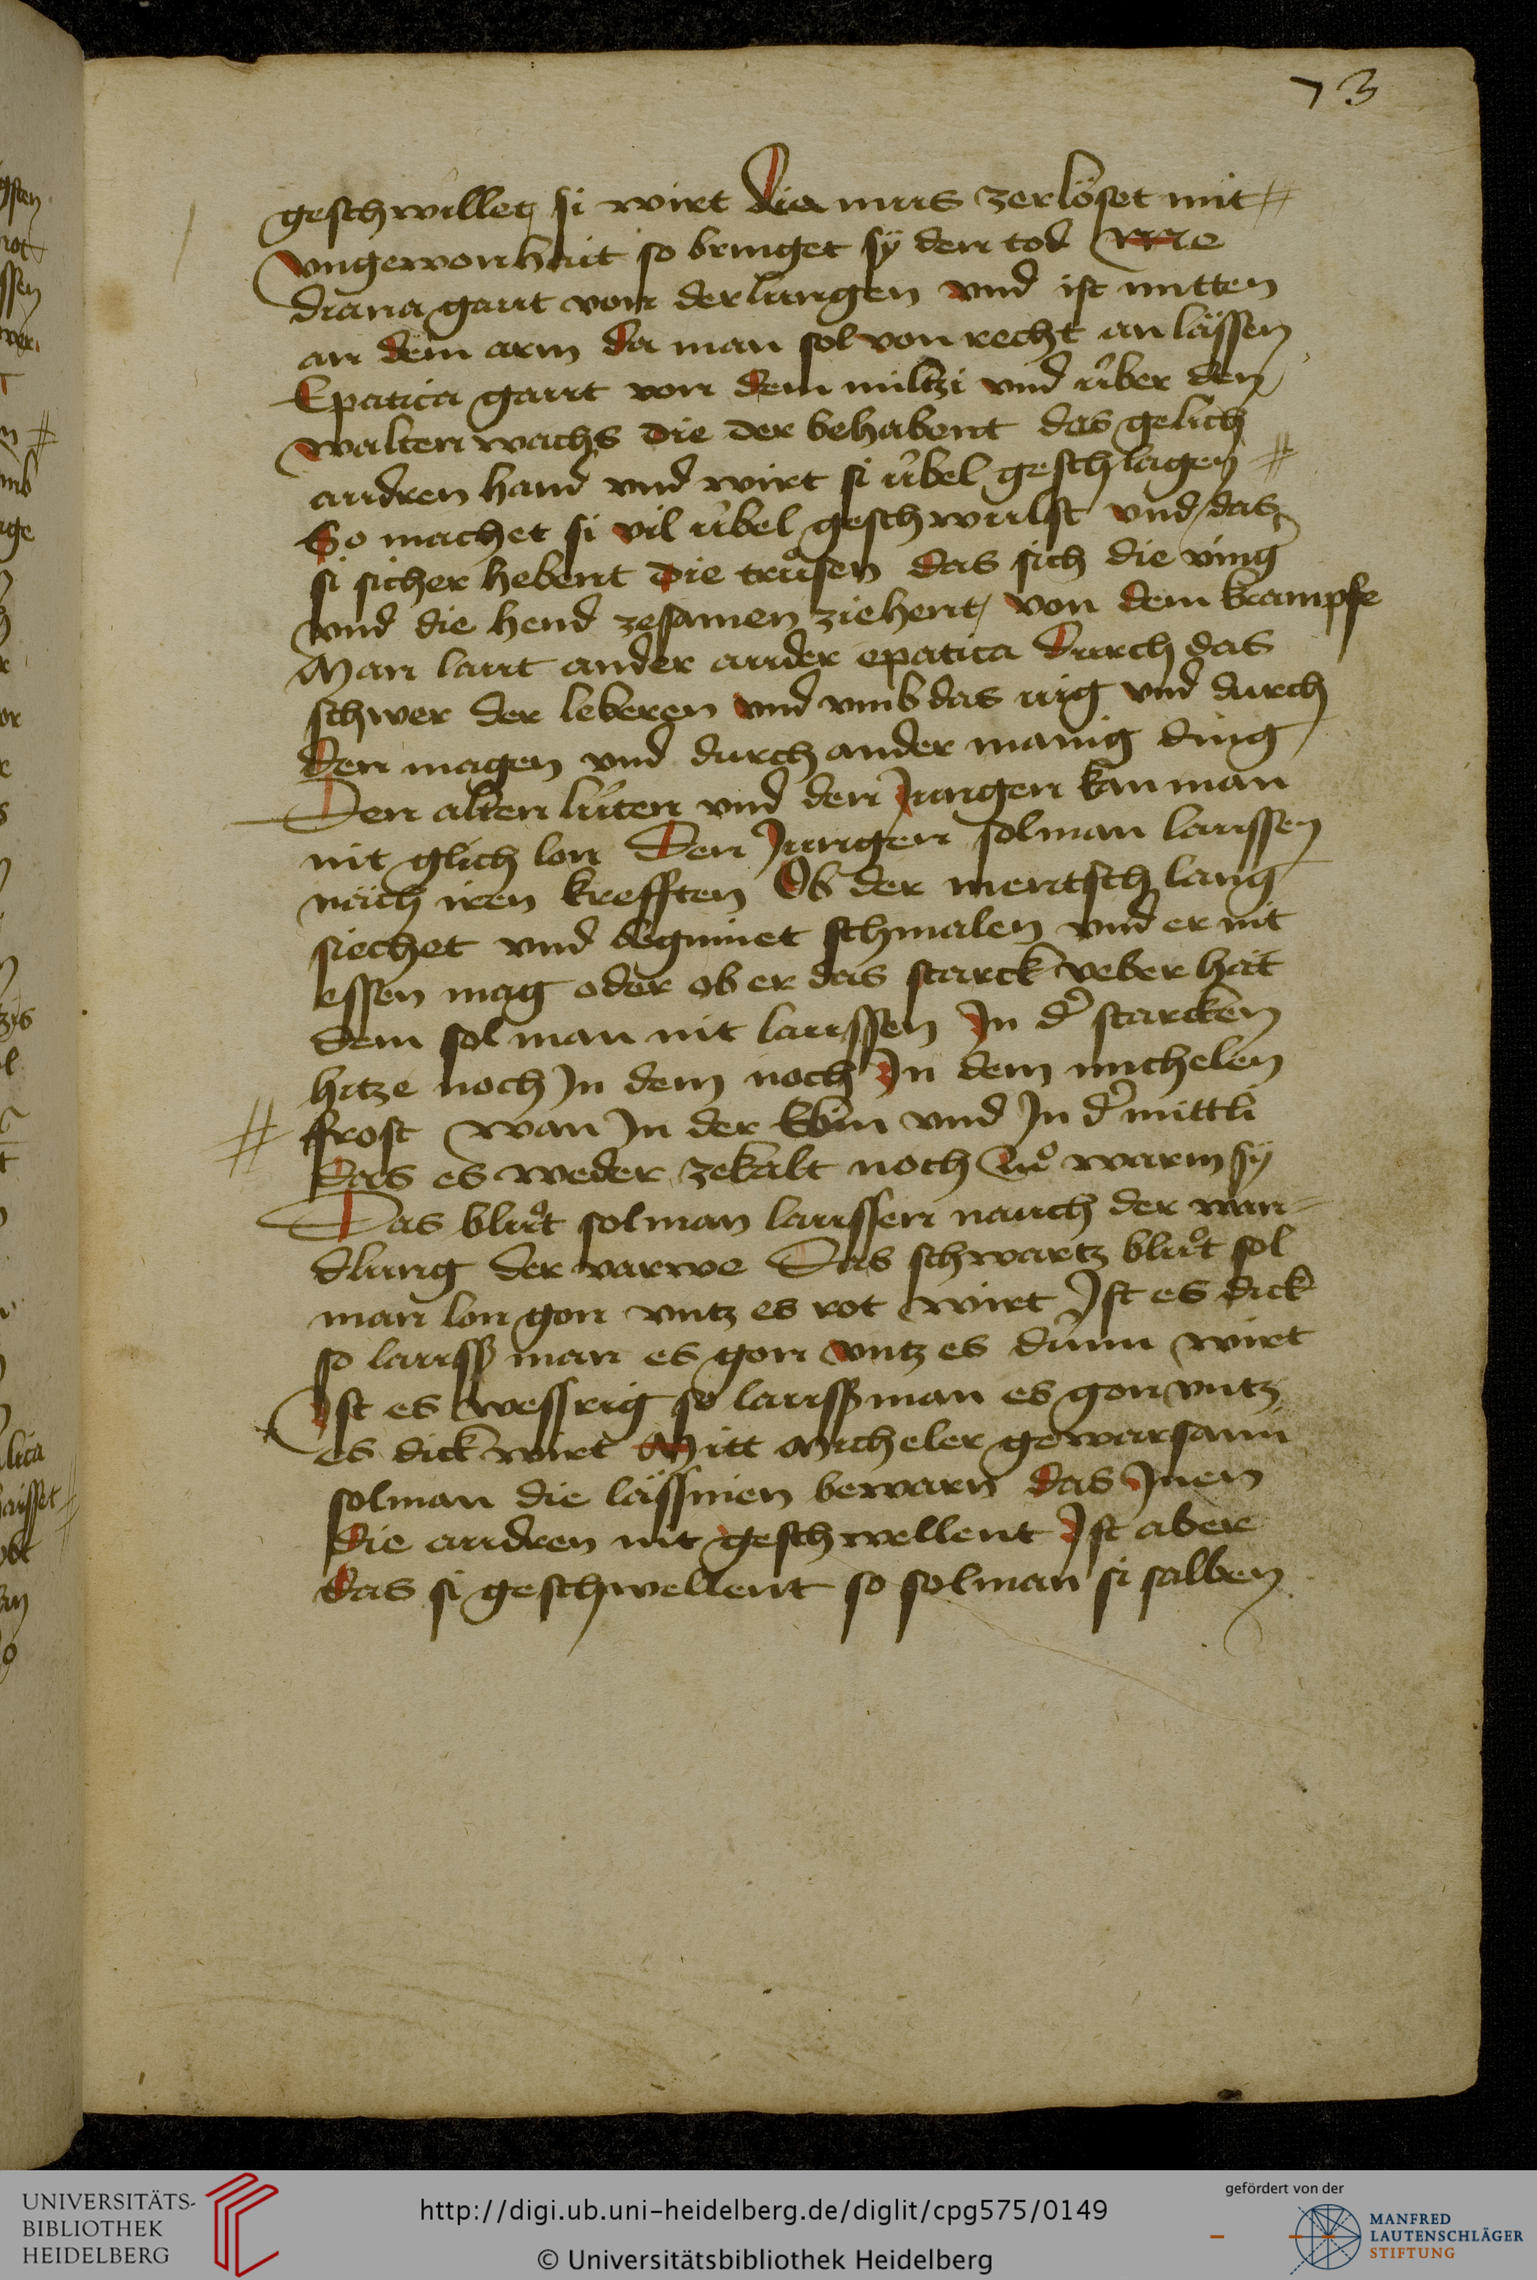 73
geschwillet si wirt die mus zerlöset mit
vngewonhait so bringet sÿ den tod
diana gaut von der lungen vnd ist mitten
an dem arm da man sol von recht an lässen
Epatica gaut von dem miltzi vnd über den
walten wachs die der behabent das gelich
andren hand vnd wirt si übel geschlagen
So machet si vil übel geschwulst vnd das
si sicher hebent die truͦsen das sich die ving
vnd die hend zesamen ziehent von dem krampfe
Man laut ander ander epatica durch das
schwer der leberen vnd vmb das uig vnd durch
den magen vnd durch ander manig ding
Den alten lüten vnd den Jungen kan man
nit glich lon Den Jungen sol man laussen
näch iren krefften Ob der mentsch lang
siechet vnd beginnet schmalen vnd er nit
essen mag oder ob er das starck veber hät
dem sol man nit laussen In dˀ starcken
hitze noch In dem noch In dem michelen
frost wan In der küin vnd In dˀ mittli
das es weder zekalt noch zuͦ warm sÿ
Das bluͦt sol man laussen nauch der wan-
dlung der varwe Das schwartz bluͦt sol
man lon gon vntz es rot wirt Ist es dick
so laussß man es gon vntz es dünn wirt
Ist es wessrig so laussß man es gon vntz
es dick wirt Mitt Micheler gewarsami
sol man die lässinen bewarn das Inen
die audren nit geschwellent Ist aber
das si geschwellent so sol man si salben
UNIVERSITÄTS-
BIBLIOTHEK
HEIDELBERG
http://digi.ub.uni-heidelberg.de/diglit/cpg575/0149
© Universitätsbibliothek Heidelberg
gefördert von der
MANFRED
LAUTENSCHLÄGER
STIFTUNG